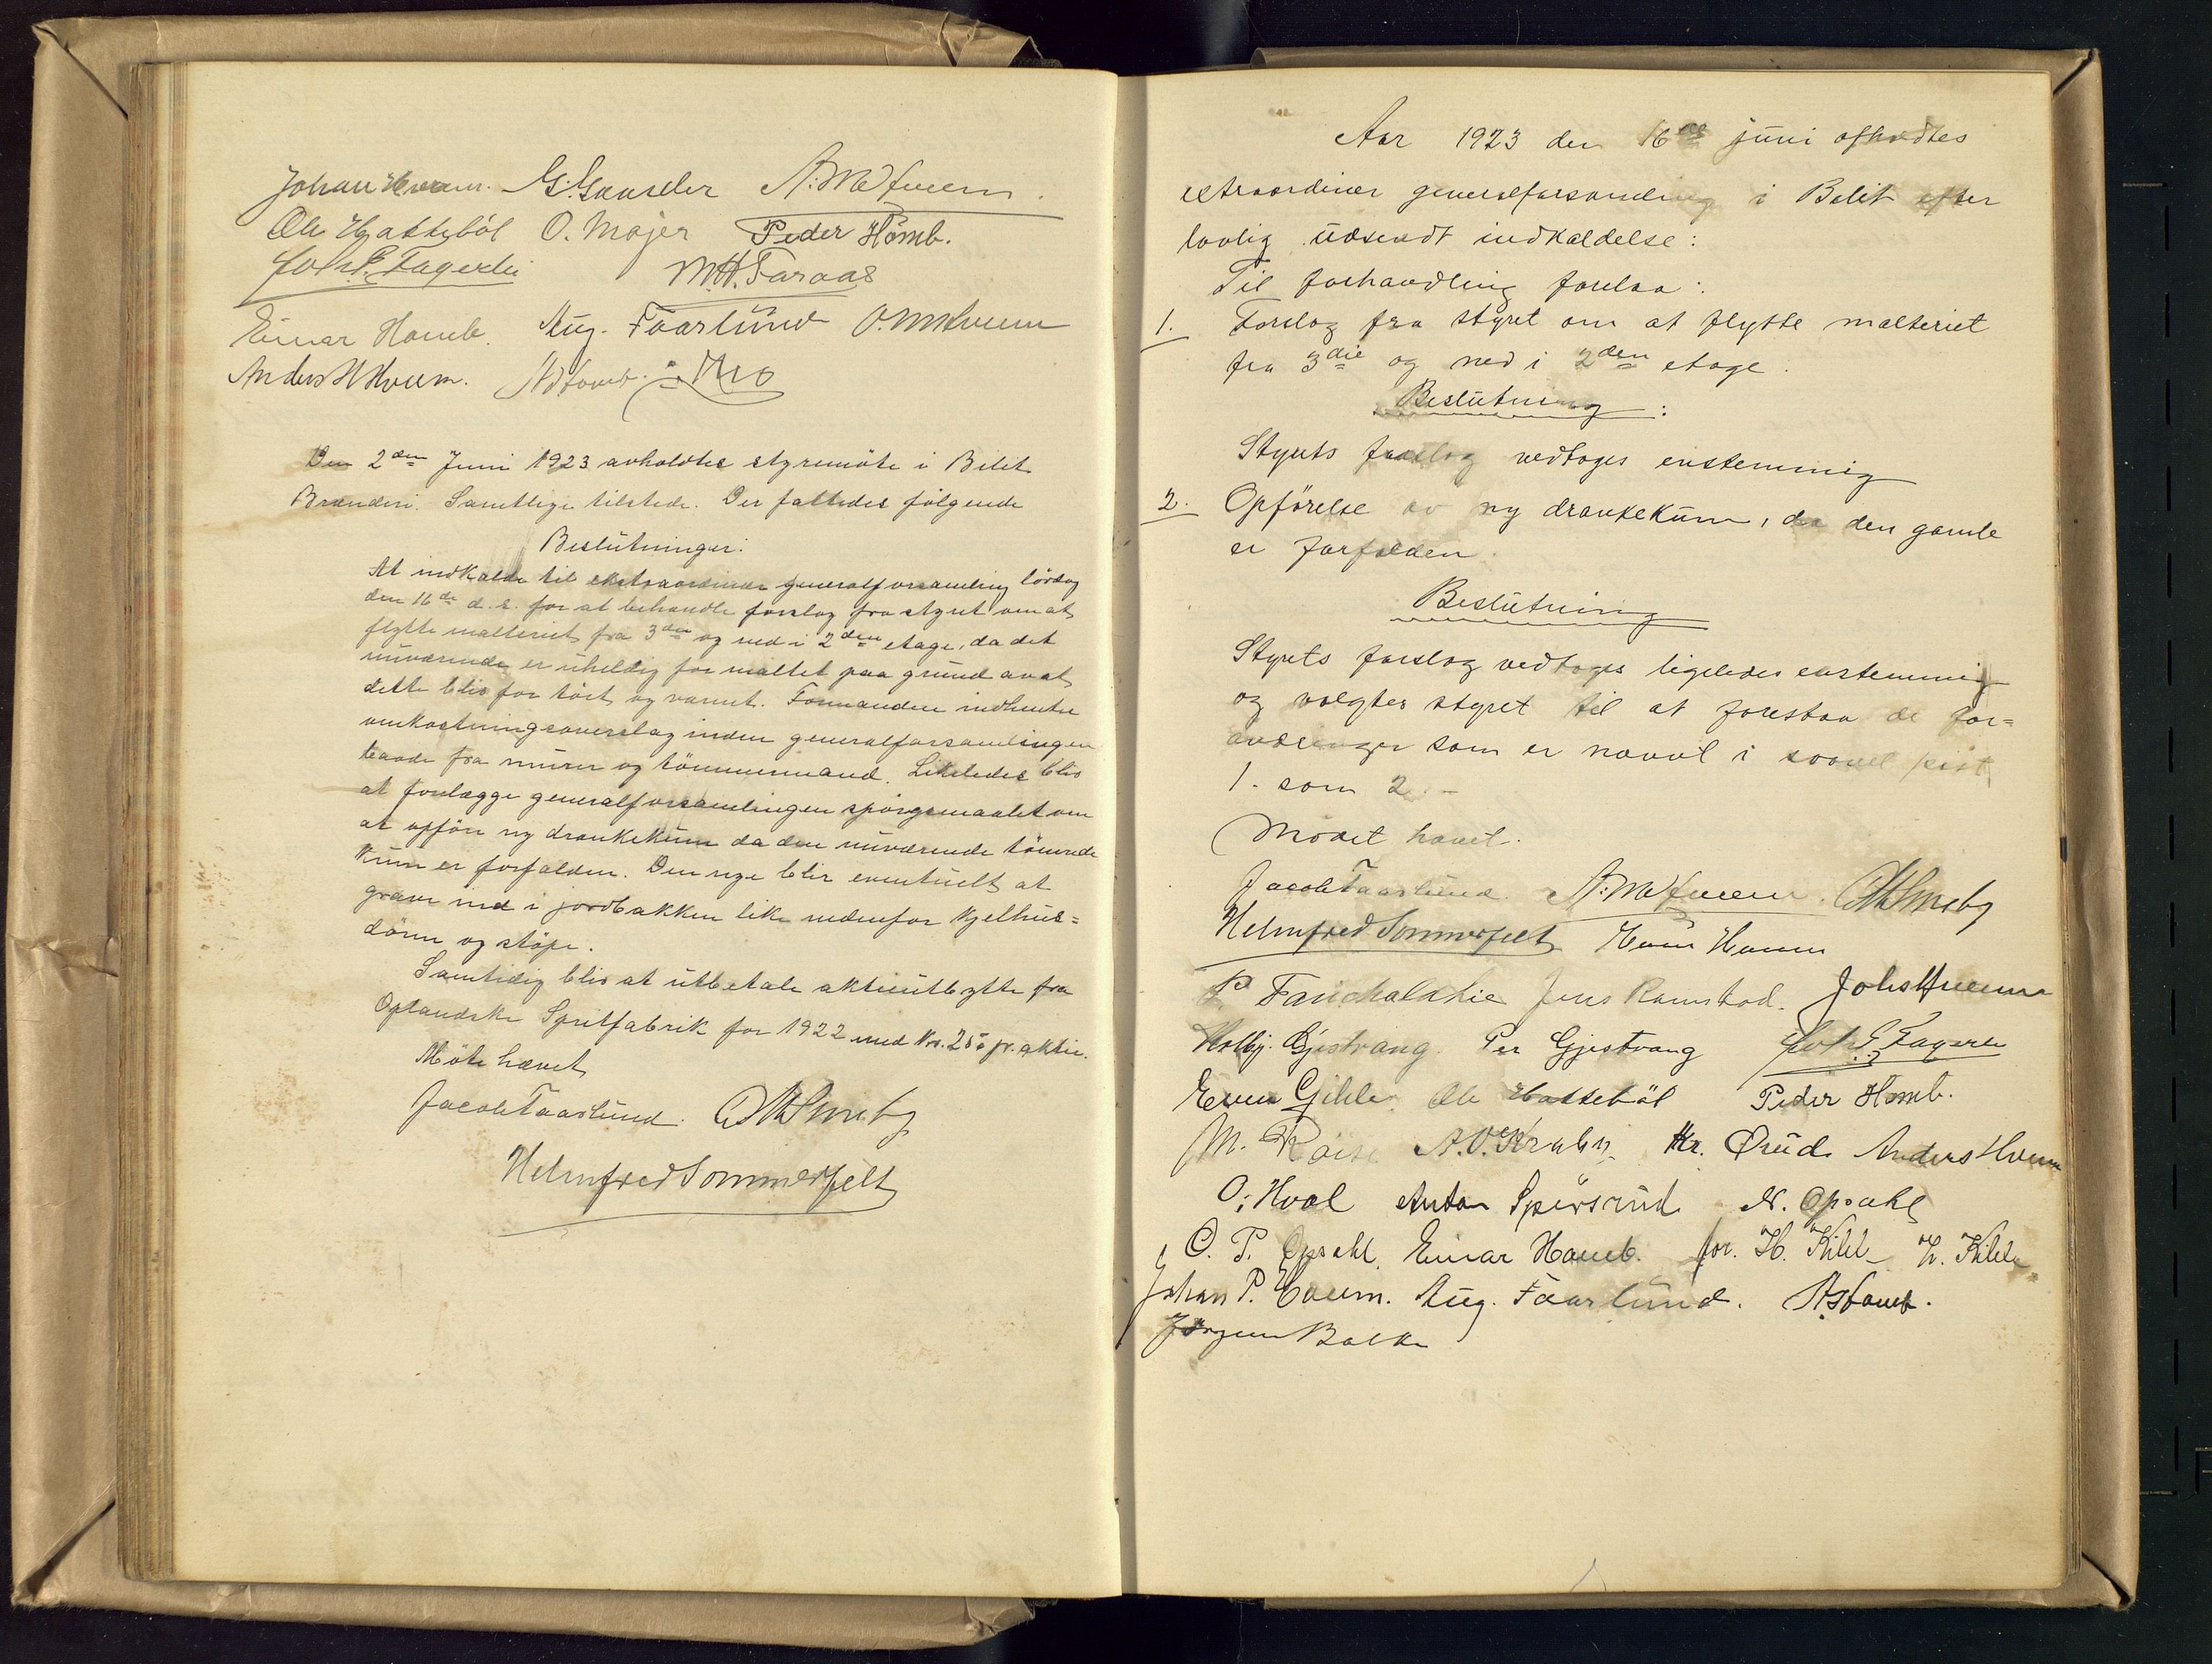 Johan Hveem. G. Gaarder A. M. Hveem.
Ole Hatteböl O. Majer Peder Homb.
Joh. E. Fagerli M. H. Faraas
Einar Homb. Aug. Faarlund O. M. Hveem
Anders H Hveem. A Homb.
Den 2den Juni 1923 avholdtes styremöte i Bilit
Brænderi. Samtlige tilstede. Der fattedes fölgende
Beslutninger:
At indkalde til ekstraordinær generalforsamling lördag
den 16de d. s. for at behandle forslag fra styret om at
flytte malteriet fra 3die og ned i 2den etage, da det
nuværende er uheldig for maltet paa grund av at
dette blir for tört og varmt. Formanden indhenter
omkostningsoverslag inden generalforsamlingen
baade fra murer og tömmermand. Likeledes blir
at forelægge generalforsamlingen spörgsmaalet om
at opföre ny drankekum da den nuværende tömrede
kum er forfalden. Den nye blir eventuelt at
grave ind i jordbakken like nedenfor kjelhus=
dören og stöpe.
Samtidig blir at utbetale aktieutbytte fra
Oplandske Spritfabrik for 1922 med Kr. 25 pr. aktie.
Möte hævet
Jacob Faarlund. O H Smeby
Helmfred Sommerfelt
Aar 1923 den 16de juni afholdtes
extraordinær generalforsamling i Bilit efter
lovlig udsendt indkaldelse:
Til forhandling forelaa:
1. Forslag fra styret om at flytte malteriet
fra 3die og ned i 2den etage.
Beslutning:
Styrets forslag vedtoges enstemmig
2. Opförelse av ny drankekum, da den gamle
er forfalden.
Beslutning
Styrets forslag vedtoges ligeledes enstemmig
og valgtes styret til at forestaa de for=
andringer som er nævnt i saavel post
1. som 2. -
Mödet hævet.
Jacob Faarlund. A. M. Hveem. O H Smeby
Helmfred Sommerfelt
P. Fauchalskie Jens Ramstad. Johs Hveem
Gjestvang. Per Gjestvang Joh. E. Fagerli
Even Gihle. Ole Hatteböl Peder Homb.
M. Roise A. O. Kraby Kr. Örud. Anders Hveem
O. Hval Anton Spörsrud N. Opsahl
O. P. Opsahl. Einar Homb. for. H. Kihle H. Kihle
Johan P. Hveem. Aug. Faarlund. A Homb.
Jörgen Balke